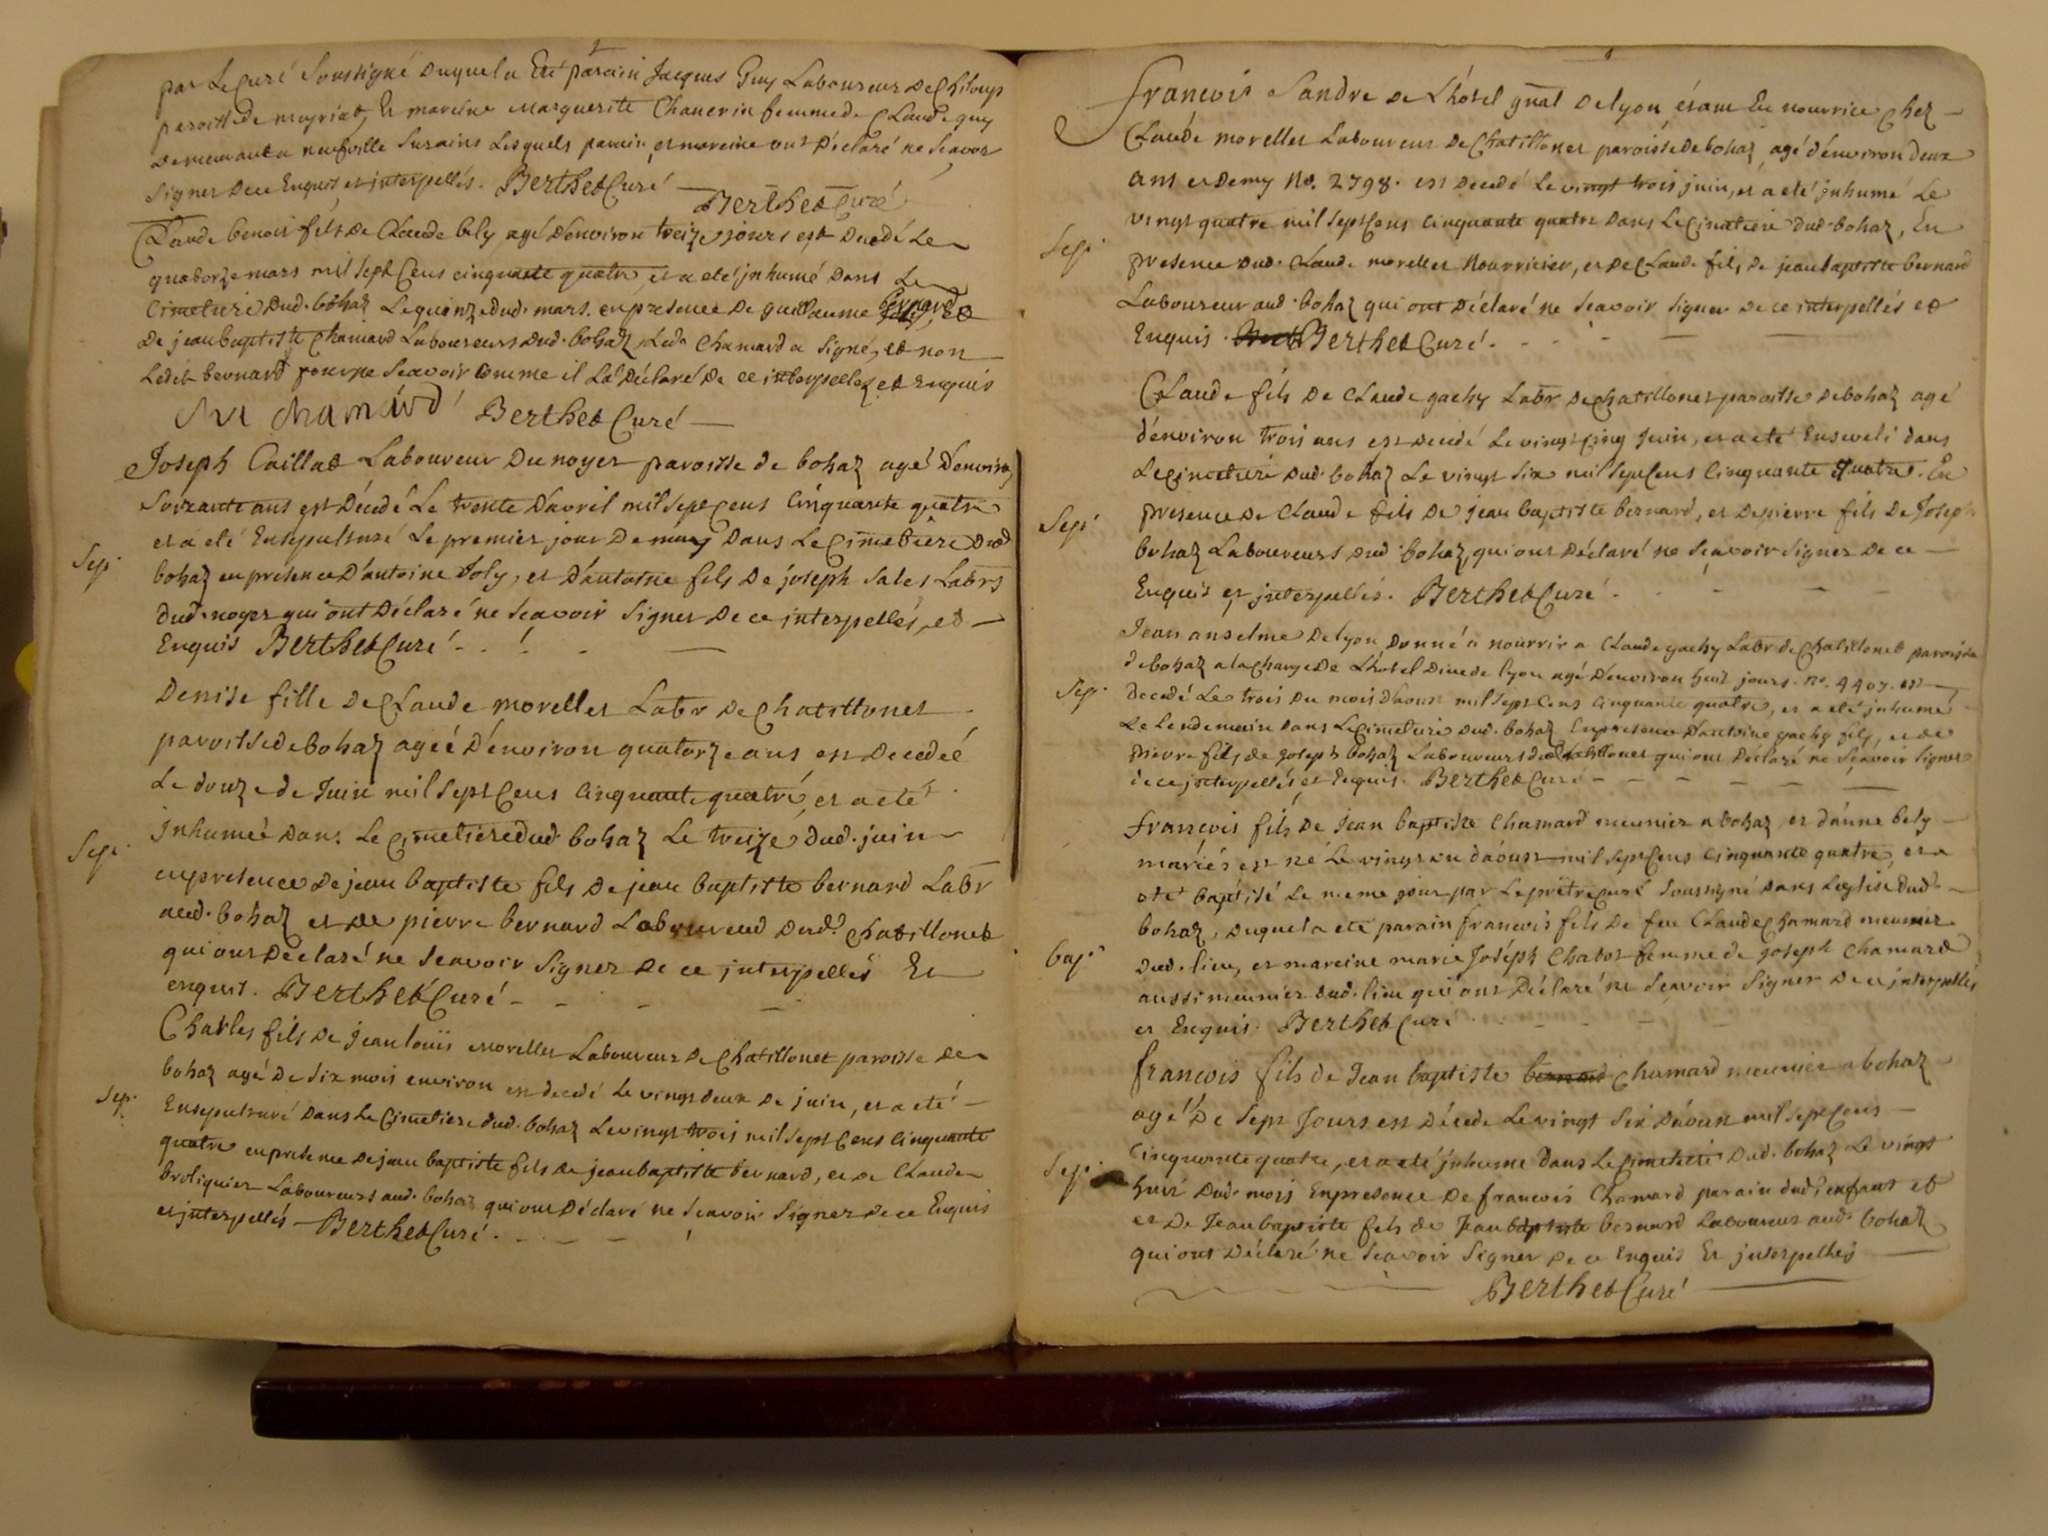 par Le Curé Soussigné Duquel a Eté parain Jacques Guy Laboureur De Chiloup
paroisse De meyriat, Et mareine Marguerite Chanerin femme de Claude guy
Demeurant a neufville Surains Lesquels parain et mareine ont Déclaré ne Scavoir
Signer De ce Enquis et interpellés. Berthet Curé
Berthet Curé
Claude benoit fils De Claude bely agé d'environ treize jours est Decedé Le
quatorze mars mil sept Cens cinquante quatre, et a eté inhumé dans Le
Cimetiere Dud. bohaz Le quinze dud. mars. en presence De guillaume bernard Et
De jean baptiste Chamard Laboureurs Dud. bohaz, Led. Chamard a Signé, et non
Ledit bernard pour ne Scavoir comme il La Déclaré De ce interpellez et Enquis
Chamard Berthet Curé
Joseph Caillat Laboureur Du noyer paroisse de bohaz agé D'environ
Soixante ans est Décedé Le trente D'avril mil Sept Cens Cinquante quatre
et a eté Ensepulturé Le premier jour De may Dans Le Cimetiere Dud.
Sep.
bohaz en présence D'antoine Joly, et D'antoine fils De joseph Sales Labrs
dud. noyer qui ont Déclaré ne Scavoir Signer De ce interpellés, et
Enquis Berthet Curé
Denise fille De Claude morellet Labr De Chatillonet
paroisse de bohaz ageé D'environ quatorze ans est Decedeé
Le douze de Juin mil Sept Cens Cinquante quatre, et a eté
Inhumeé Dans Le Cimetiere dud. bohaz Le treize dud. juin
Sep.
en presence De jean baptiste fils De jean baptiste bernard Labr
aud. bohaz et de pierre bernard Laboureur Dud. Chatillonet
qui ont Declaré ne Scavoir Signer De ce interpellés Et
enquis. Berthet Curé
Charles fils De jean loüis Morellet Laboureur De Chatillonet paroisse De
bohaz agé De Six mois environ est decedé Le vingt deux De juin, et a eté
Sep.
Ensepulturé Dans Le Cimetiere dud. bohaz Le vingt trois mil Sept Cens Cinquante
quatre en presence De jean baptiste fils De jean baptiste bernard, et De Claude
broliquier Laboureurs aud. bohaz qui ont Déclaré ne Scavoir Signer De ce Enquis
et interpellés Berthet Curé.
francois Sandre De L'hotel gnal De lyon, étant En nourrice Chez
Claude morellet Laboureur De Chatillonet paroisse De bohaz, agé d'environ deux
ans et Demy No. 2798. est Decedé Le vingt trois juin, et a eté inhumé Le
vingt quatre mil Sept Cens Cinquante quatre Dans Le Cimetiere dud. bohaz, En
Sep.
presence Dud. Claude morellet Nourricier, et De Claude fils de jean baptiste bernard
Laboureur aud. bohaz qui ont Déclaré ne Scavoir Signer De ce interpellés et
Enquis. Berthet Curé.
Claude fils De Claude gachy Labr De Chatillonet paroisse De bohaz agé
d'environ trois ans est Decedé Le vingt Cinq Juin, et a eté Enseveli dans
Le Cimetiere Dud. bohaz Le vingt Six mil Sept Cens Cinquante quatre. En
Sep.
presence De Claude fils De jean baptiste bernard, et De pierre fils De Joseph
bohaz Laboureurs Dud. bohaz, qui ont Déclaré ne Scavoir Signer De ce
Enquis et interpellés. Berthet Curé.
Jean anselme De lyon, Donné a nourrir a Claude gachy Labr de Chatillonet paroisse
de bohaz a la Charge De L'hotel Dieu de lyon agé D'environ huit jours. no. 4407. est
Sep.
Decedé Le trois Du mois D'aoust mil Sept Cens Cinquante quatre, et a eté inhumé
Le Lendemain Dans Le Cimetiere Dud. bohaz En presence D'antoine gachy fils, et de
pierre fils de joseph bohaz Laboureurs dud. Chatillonet qui ont Déclaré ne Scavoir Signer
de ce interpellés et Enquis. Berthet Curé
francois fils De Jean baptiste Chamard meunier a bohaz, et d'anne bely
mariés est né Le vingt un d'aoust mil Sept Cens Cinquante quatre, et a
eté baptisé Le meme jour par Le prêtre Curé Soussigné Dans L'eglise Dud.
bohaz, Duquel a eté parain francois fils De feu Claude Chamard meunier
bap.
Dud. lieu, et mareine marie Joséph Chabot femme de joseph Chamard
aussi meunier dud. lieu qui ont Déclaré ne Scavoir Signer De ce interpellés
et Enquis. Berthet Curé
francois fils de Jean baptiste bernard Chamard meunier a bohaz
agé De Sept Jours est Décedé Le vingt Six D'aoust mil Sept Cens
Cinquante quatre, et a eté inhumé Dans Le Cimetiere Dud. bohaz Le vingt
Sep.
huit Dud. mois En presence De francois Chamard parain dud. enfant et
et De Jean baptiste fils de Jean baptiste bernard Laboureur aud. bohaz
qui ont Déclaré ne Scavoir Signer De ce Enquis Et interpellés
Berthet Curé